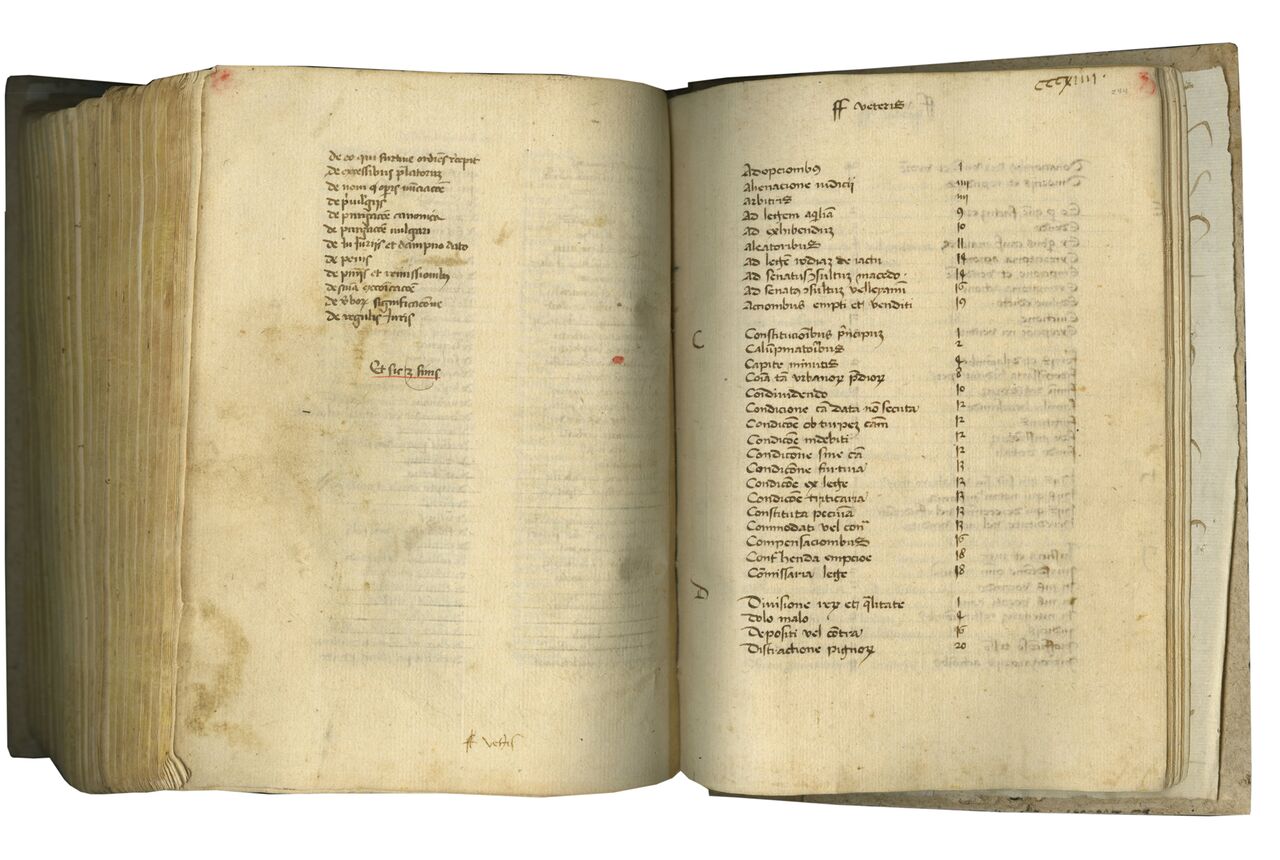 de eo qui furtive ordinēs recepit
de excessibus prelatorum
de novi operis nūciacōe
de privilegiis
de purgacōe canonica
de purgacōe vulgari
de Iniuriis et dampno dato
de penis
de pnīis et remissionibus
de snīa excōicacōis
de verborum significacōne
de regulis iuris
Et sic est finis
ff vetris
ff veteris
ccc xiiii
244
Adopcionibus 1
Alienacione iudicii iiii
Arbitris iiii
Ad legem aquiliā 9
Ad exhibendum 10
Aleatoribus 11
Ad legē rodiam de iactu 14
Ad senatusconsultum macedo. 14
Ad senatusconsultum velleyani 16
Accionibus empti et venditi 19
C
Constitucionibus principum 1
Calumpniatoribus 2
Capite minutis 4
Cōia tā urbanorum prediorum 8
Cōidividendo 10
Condicione cā data nō secuta 12
Condicōe ob turpem cām 12
Condicōe indebiti 12
Condicōne sine cā 12
Condicōne furtiva 13
Condicōe ex lege 13
Condicōe triticaria 13
Constituta pecunia 13
Commodati vel con 13
Compensacionibus 16
Conthenda empcioe 18
Cōmissaria lege 18
Divisione rerum et qualitate 1
Dolo malo 4
Depositi vel contra 16
Distractione pignorum 20